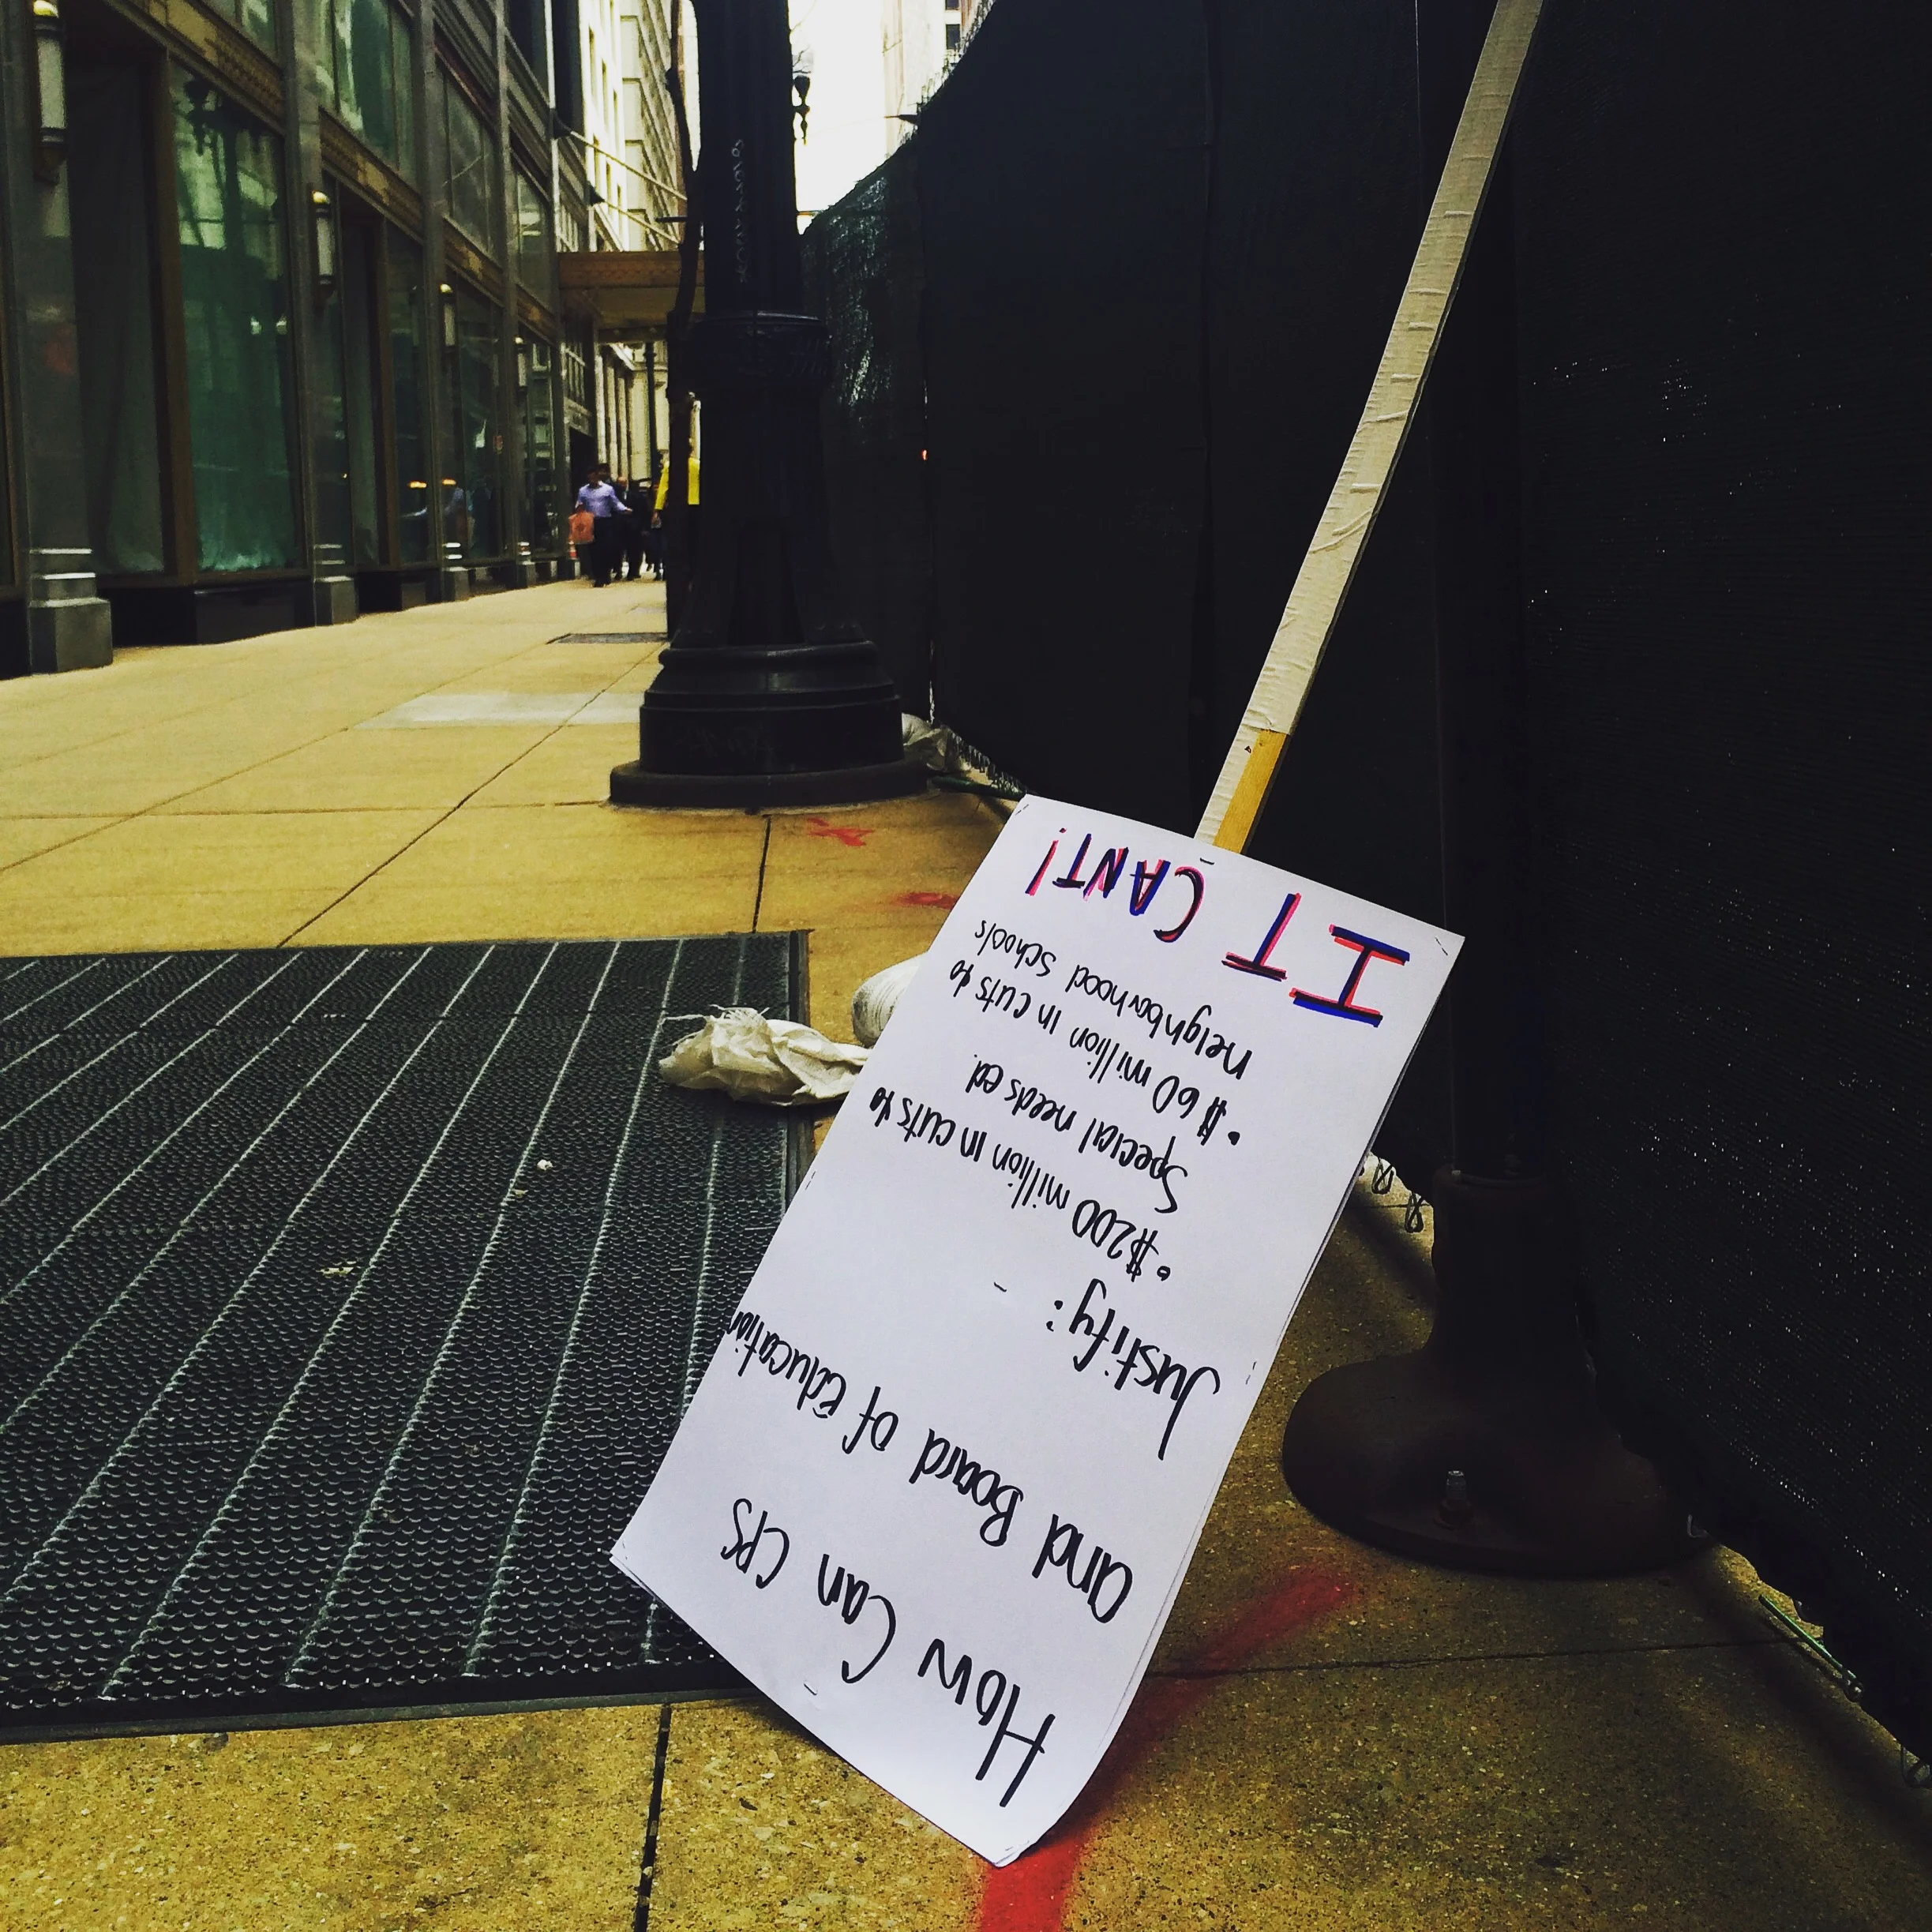 How Can CPS
and Board of Education
Justify:
• $200 million in cuts to
Special needs ed.
• $60 million in cuts to
neighborhood schools
IT CANT!